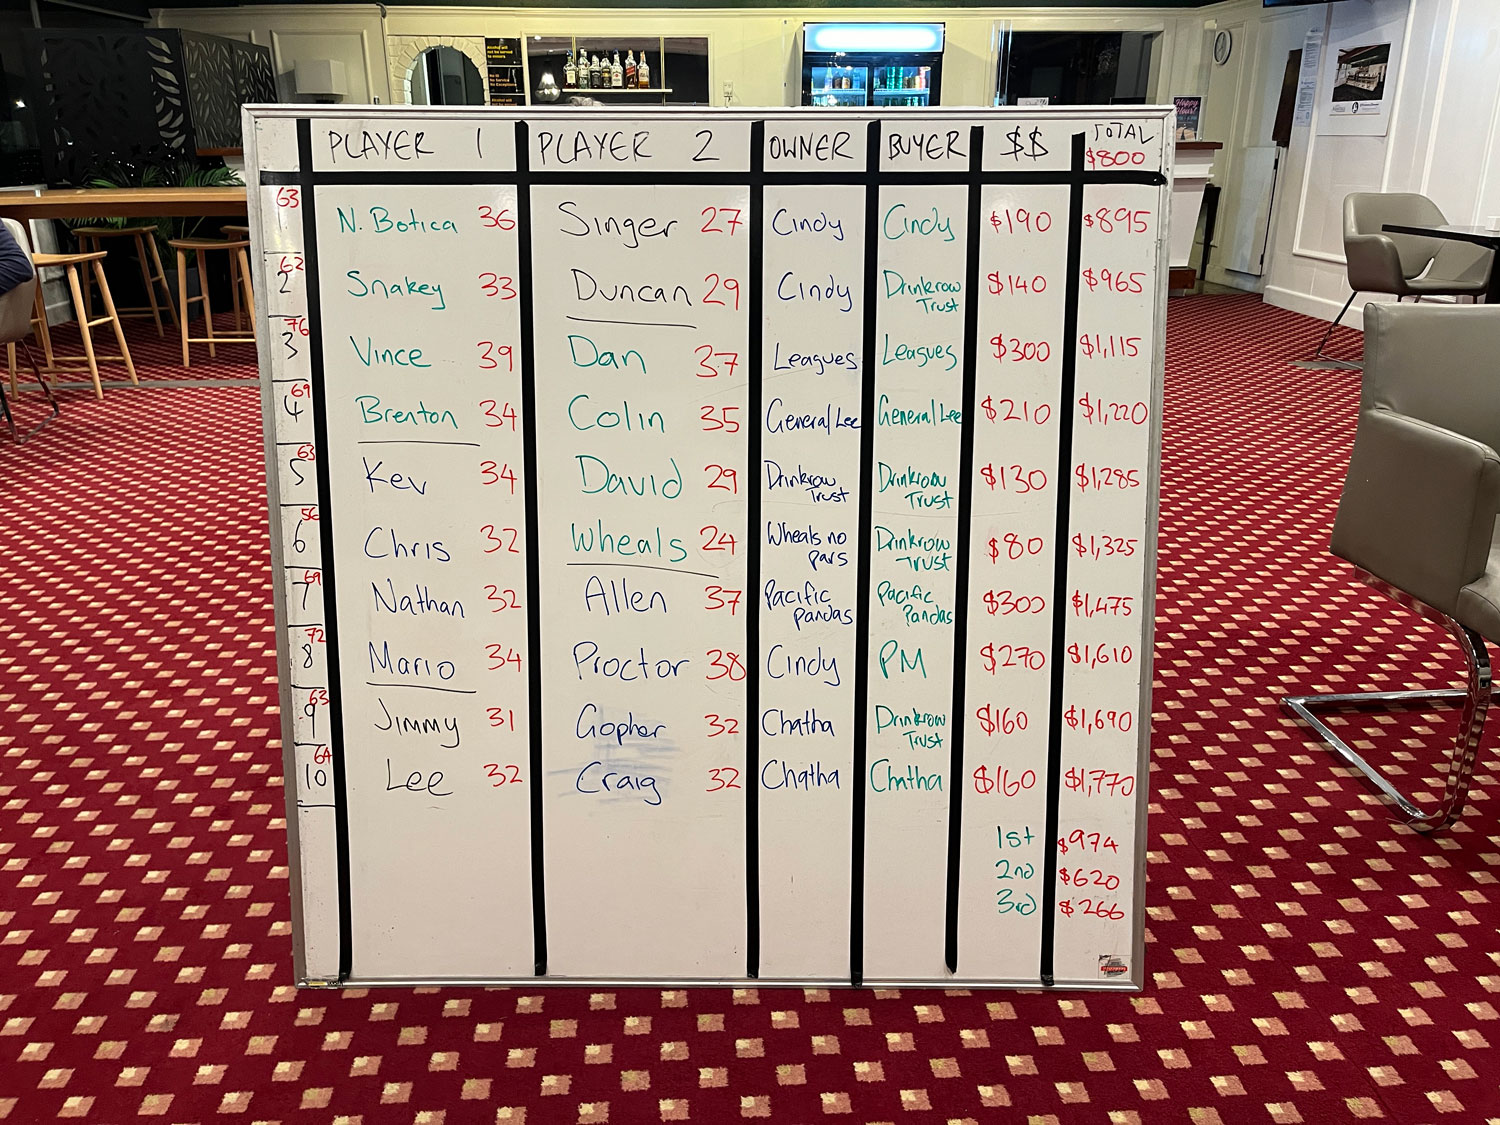 PLAYER 1 PLAYER 2 OWNER BUYER $$ TOTAL
$800
63
1 N. Botica 36 Singer 27 Cindy Cindy $190 $895
62
2 Snakey 33 Duncan 29 Cindy Drinkrow Trust $140 $965
76
3 Vince 39 Dan 37 Leagues Leagues $300 $1,115
69
4 Brenton 34 Colin 35 General Lee General Lee $210 $1,220
63
5 Kev 34 David 29 Drinkrow Trust Drinkrow Trust $130 $1,285
56
6 Chris 32 Wheals 24 Wheals no pars Drinkrow Trust $80 $1,325
69
7 Nathan 32 Allen 37 Pacific Pandas Pacific Pandas $300 $1,475
72
8 Mario 34 Proctor 38 Cindy PM $270 $1,610
63
9 Jimmy 31 Gopher 32 Chatha Drinkrow Trust $160 $1,690
64
10 Lee 32 Craig 32 Chatha Chatha $160 $1,770
1st $974
2nd $620
3rd $266
Happy Hour!